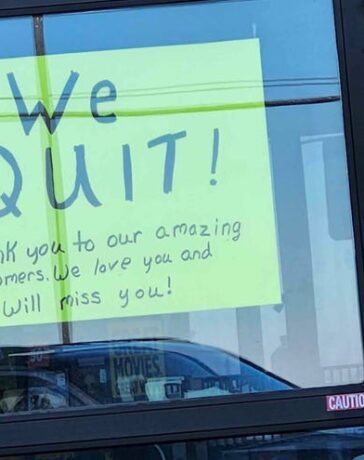 We
QUIT!
nk you to our amazing
omers. We love you and
Will miss you!
MOVIES
CAUTIO